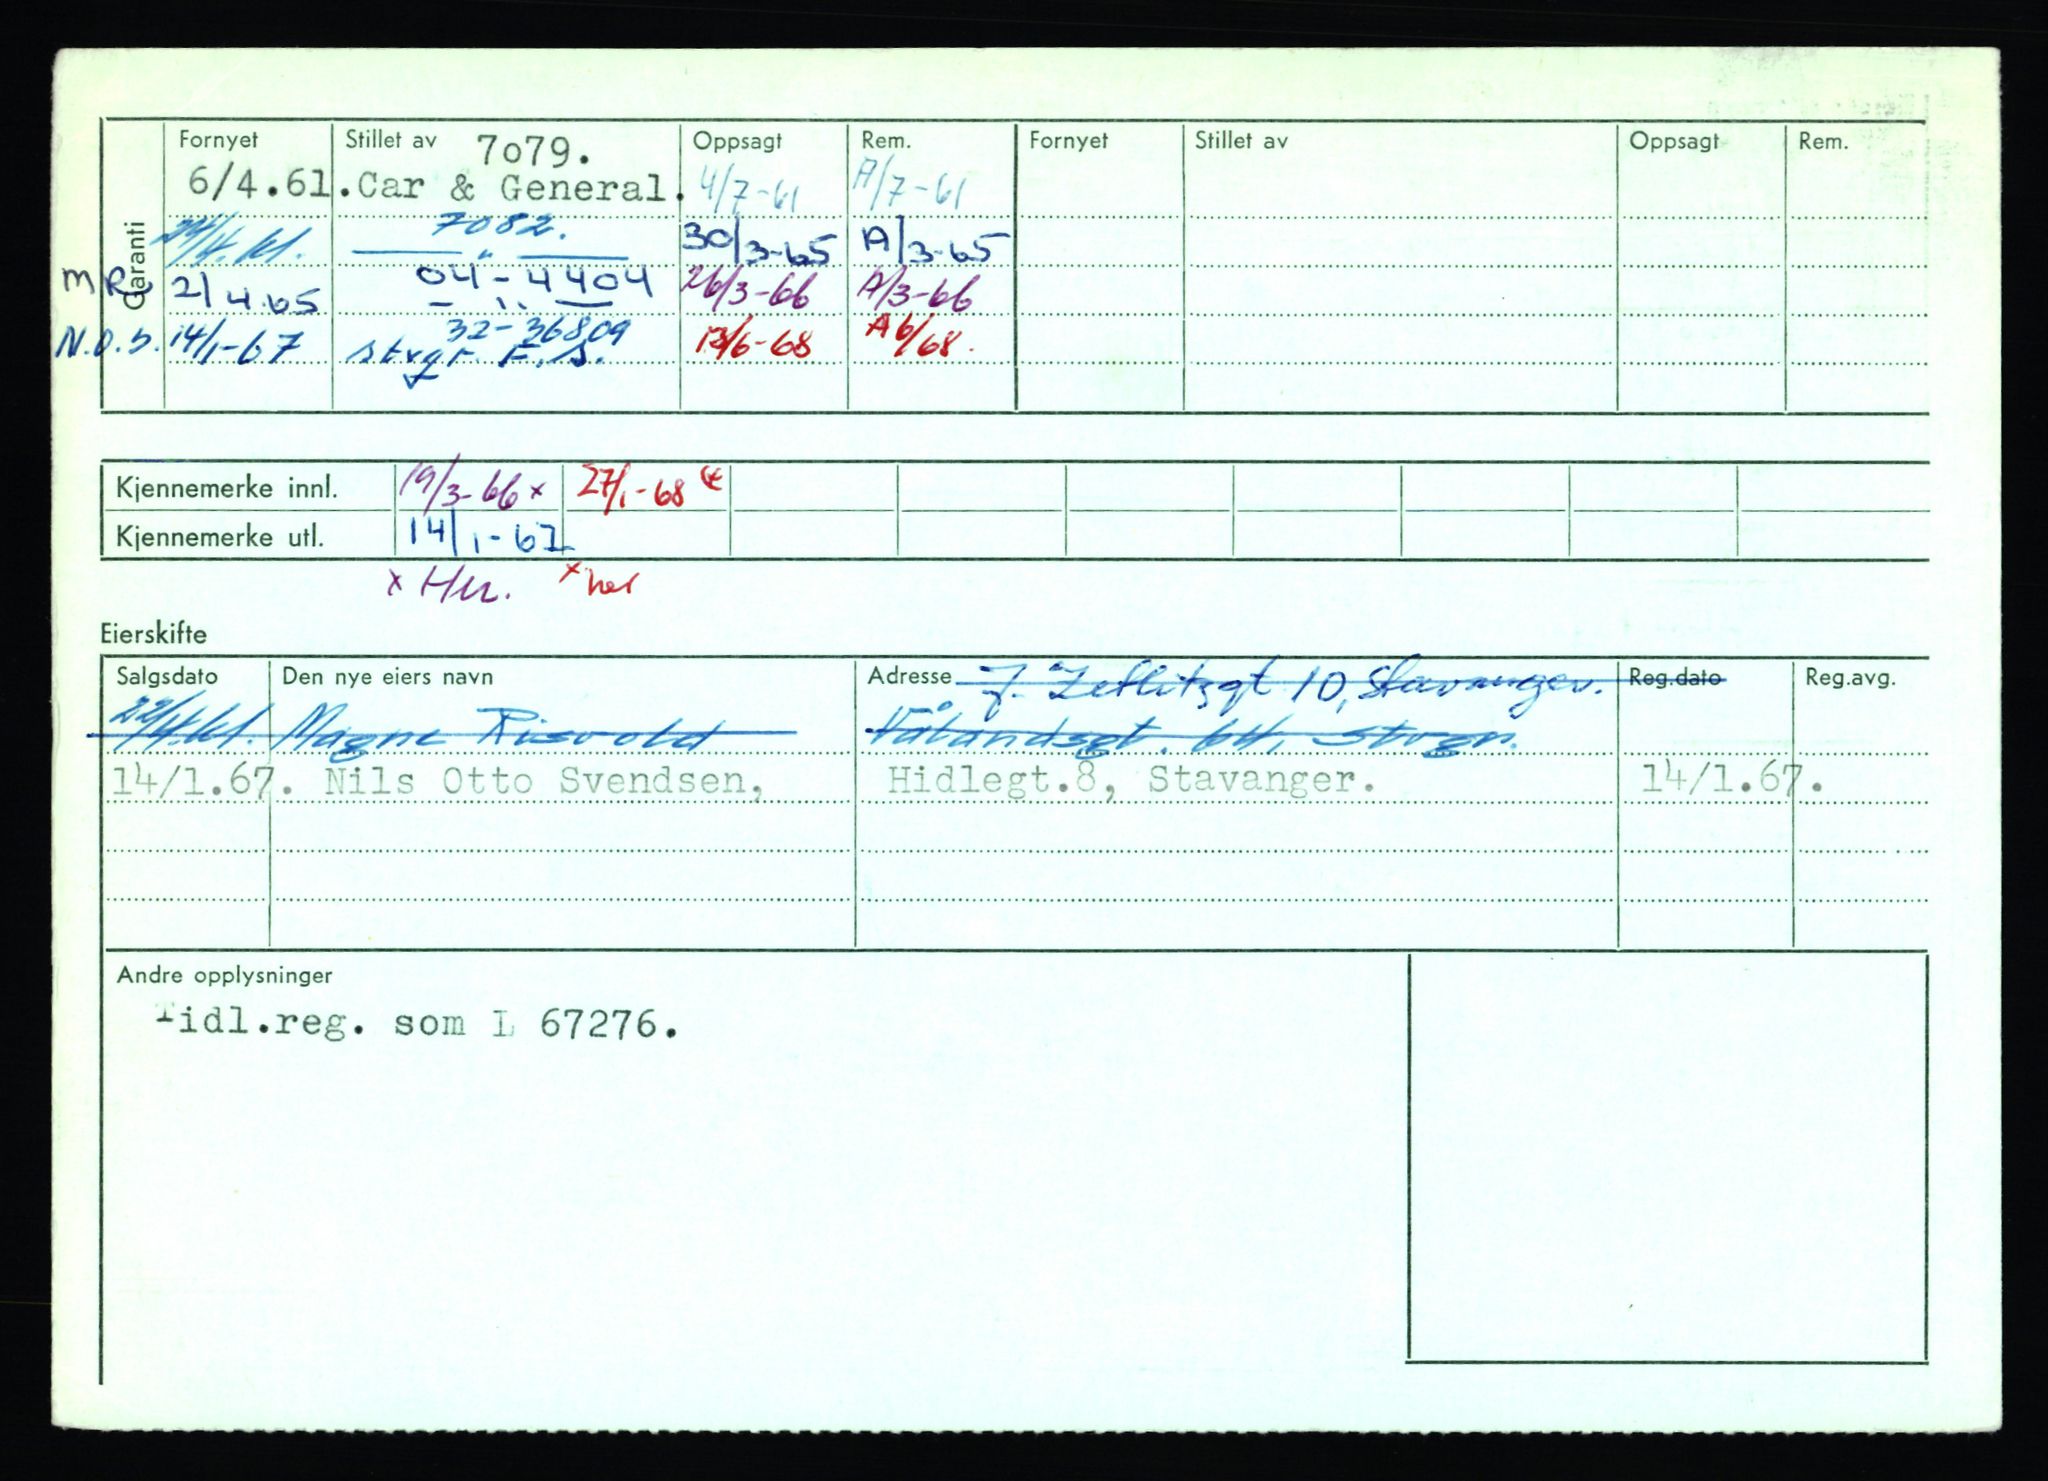 Garanti
Fornyet Stillet av 7079. Oppsagt Rem. Fornyet Stillet av Oppsagt Rem.
6/4.61. Car & General. 4/7-61 A/7-61
24/4.61. 7082. 30/3-65 A/3-65
— " —
MR 2/4.65 04-4404 26/3-66 A/3-66
— " —
N.O.S. 14/1-67 32-36809 13/6-68 A6/68.
Stvgr. F.S.
Kjennemerke innl. 19/3-66 x 27/1-68
Kjennemerke utl. 14/1-67
x Hu. x hel
Eierskifte
Salgsdato Den nye eiers navn Adresse J. Zetlitzgt 10, Stavanger. Reg.dato Reg.avg.
22/4.61. Magne Risvold Vålandsgt. 64, Stvgr.
14/1.67. Nils Otto Svendsen, Hidlegt.8, Stavanger. 14/1.67.
Andre opplysninger
Tidl.reg. som L 67276.